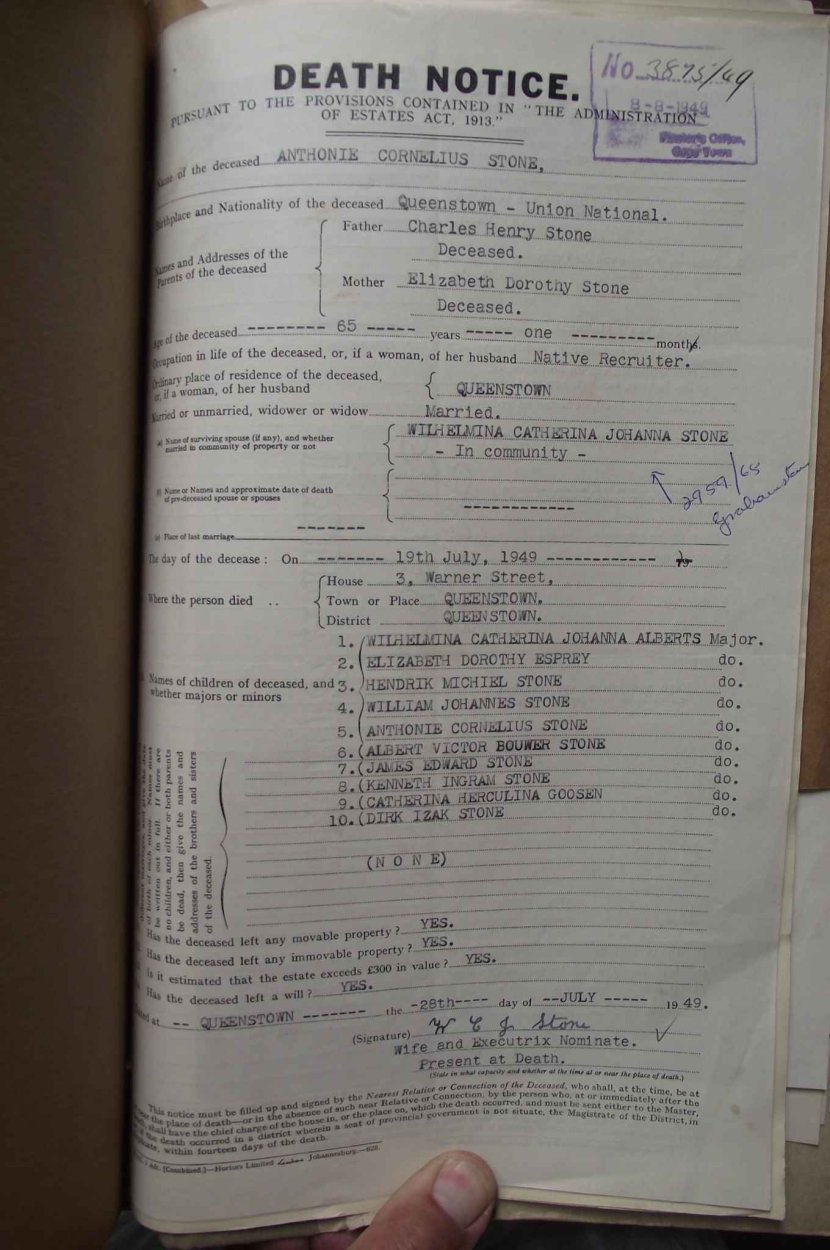 DEATH NOTICE.
No. 3875/49
8-8-1949
Master's Office,
Cape Town
PURSUANT TO THE PROVISIONS CONTAINED IN "THE ADMINISTRATION
OF ESTATES ACT, 1913."
Name of the deceased ANTHONIE CORNELIUS STONE,
Birthplace and Nationality of the deceased Queenstown - Union National.
Names and Addresses of the
Parents of the deceased
Father Charles Henry Stone
Deceased.
Mother Elizabeth Dorothy Stone
Deceased.
Age of the deceased -------- 65 ----- years ----- one --------- months.
Occupation in life of the deceased, or, if a woman, of her husband Native Recruiter.
Ordinary place of residence of the deceased,
or, if a woman, of her husband QUEENSTOWN
Married or unmarried, widower or widow Married.
(a) Name of surviving spouse (if any), and whether
married in community of property or not
WILHELMINA CATHERINA JOHANNA STONE
- In community -
2959/65
Grahamstown
(b) Name or Names and approximate date of death
of pre-deceased spouse or spouses
------------
(c) Place of last marriage -------
The day of the decease: On ------- 19th July, 1949 ------------
Where the person died ..
House 3, Warner Street,
Town or Place QUEENSTOWN.
District QUEENSTOWN.
Names of children of deceased, and
whether majors or minors
1. (WILHELMINA CATHERINA JOHANNA ALBERTS Major.
2. (ELIZABETH DOROTHY ESPREY do.
3. )HENDRIK MICHIEL STONE do.
4. )WILLIAM JOHANNES STONE do.
5. (ANTHONIE CORNELIUS STONE do.
6. (ALBERT VICTOR BOUWER STONE do.
7. (JAMES EDWARD STONE do.
8. (KENNETH INGRAM STONE do.
9. (CATHERINA HERCULINA GOOSEN do.
10. (DIRK IZAK STONE do.
of birth of each minor. Names must
be written out in full. If there are
no children, and either or both parents
be dead, then give the names and
addresses of the brothers and sisters
of the deceased.
(N O N E)
Has the deceased left any movable property? YES.
Has the deceased left any immovable property? YES.
Is it estimated that the estate exceeds £300 in value? YES.
Has the deceased left a will? YES.
Dated at -- QUEENSTOWN ------- the -28th---- day of --JULY ----- 1949.
(Signature) W C J Stone
Wife and Executrix Nominate.
Present at Death.
(State in what capacity and whether at the time at or near the place of death.)
This notice must be filled up and signed by the Nearest Relative or Connection of the Deceased, who shall, at the time, be at
the place of death—or in the absence of such near Relative or Connection, by the person who, at or immediately after the
shall have the chief charge of the house in, or the place on, which the death occurred, and must be sent either to the Master,
the death occurred in a district wherein a seat of provincial government is not situate, the Magistrate of the District, in
within fourteen days of the death.
[Combined.]—Hortors Limited Johannesburg.—628.